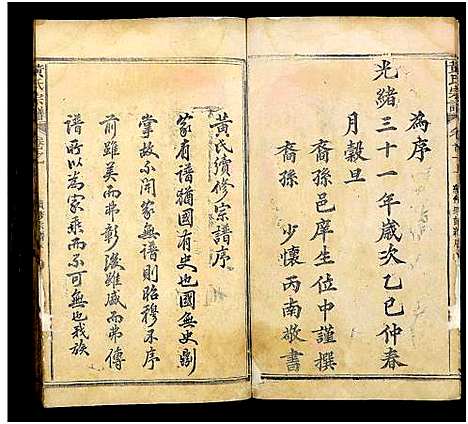 為序
光緒三十一年歲次乙巳仲春
月穀旦
裔孫邑庠生位中謹撰
裔孫少懷丙南敬書
黃氏續修宗譜序
家有譜猶國有史也國無史則
掌故不開家無譜則昭穆不序
前雖美而弗彰後雖盛而弗傳
譜所以為家乘而不可無也我族
黃氏宗譜